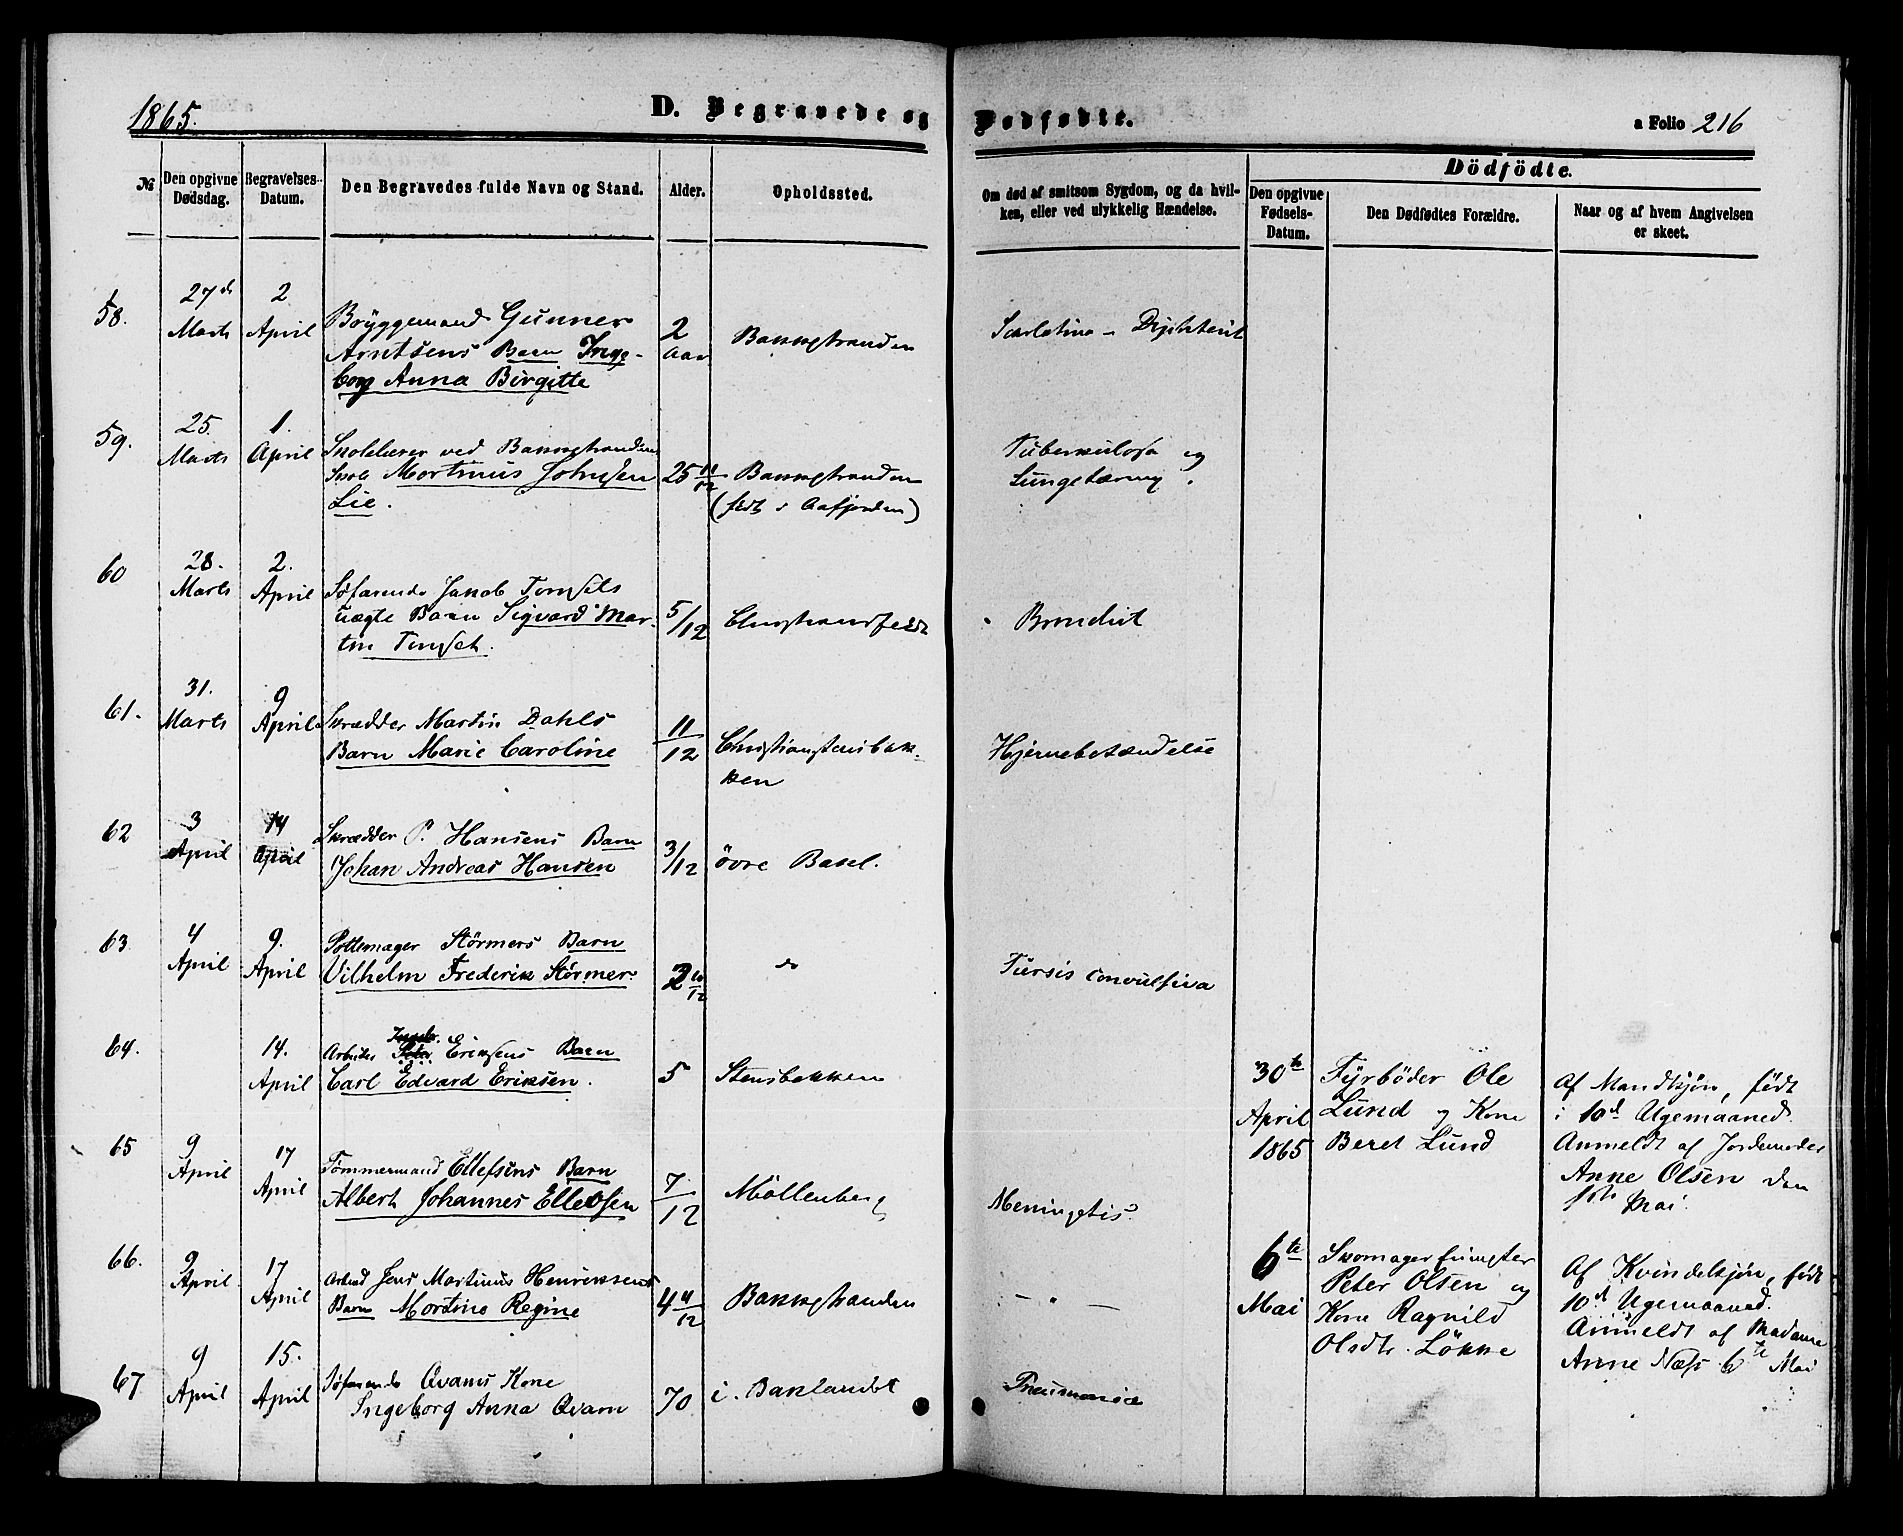 1865.
D. Begravede og Dødfødte.
a Folio 216
№
Den opgivne Dødsdag.
Begravelses-Datum.
Den Begravedes fulde Navn og Stand.
Alder.
Opholdssted.
Om død af smitsom Sygdom, og da hvil-
ken, eller ved ulykkelig Hændelse.
Dödfödte.
Den opgivne Fødsels-Datum.
Den Dødfødtes Forældre.
Naar og af hvem Angivelsen
er skeet.
58.
27de Marts
2 April
Bryggemand Gunner
Arntsens Barn Inge-
borg Anna Birgitte
2 Aar
Bakkestranden
Scarlatina - Diphterit
59.
25. Marts
1. April
Skolelærer ved Bakkestrandens
Skole Martinus Johnsen
Lie.
25 11/12
Bakkestranden
(født i Aafjorden)
Tuberkulosa og
Lungetæring.
60
28. Marts
2. April
Søfarende Jakob Tomsets
uægte Barn Sigvard Mar-
tin Tomset.
5/12
Christiansfeldt
Bronchit
61.
31. Marts
9 April
Skrædder Martin Dahls
Barn Marie Caroline
11/12
Christianstensbak-
ken
Hjernebetændelse
62
3 April
14 April
Skrædder P. Hansens Barn
Johan Andreas Hansen
3/12
övre Basel.
63
4 April
9. April
Pottemager Störmers Barn
Vilhelm Frederik Störmer.
2 10/12
do
Tussis convulsiva
64.
14. April
Arbeider Eriksens Barn
Carl Edvard Eriksen.
5
Stensbakken
30te April 1865
Fyrböder Ole
Lund og Kone
Beret Lund
Af Mandkjøn, født
i 10d Ugemaaned.
Anmeldt af Jordemoder
Anne Olsen den
1ste Mai.
65
9 April
17 April
Tömmermand Ellefsens Barn
Albert Johannes Ellefsen
7/12
Möllenberg
Meningetis.
66.
9 April.
17 April
Arbeid Jens Martinus Henriksens
Barn Martine Regine
4 11/12
Bakkestranden
— " —
6te Mai
Skomagersvend
Peter Olsen og
Kone Ragnild
Olsdtr. Lökke
Af Kvindekjøn, født
10d Ugemaaned.
Anmeldt af Madame
Anne Næss 6te Mai
67
9 April
15. April
Søfarende Qvams Kone
Ingeborg Anna Qvam
70
i. Baklandet
Pneumonia